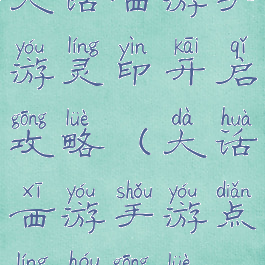 yóu líng yìn kāi qǐ
游灵印开启
gōng lüè dà huà
攻略(大话
xī yóu shǒu yóu diǎn
西游手游点